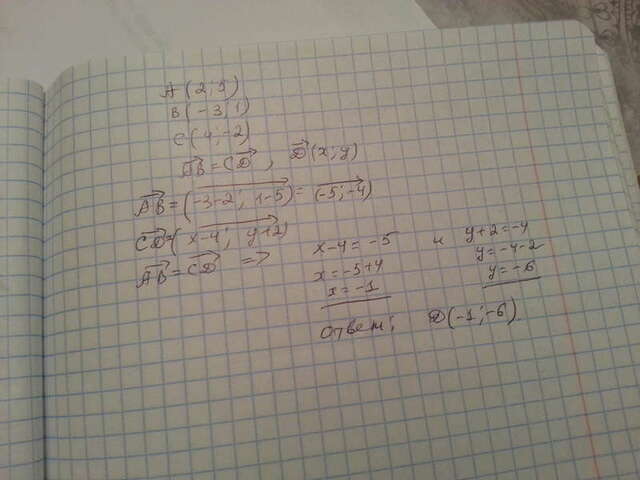 A (2; 5)
B (-3; 1)
C (4; -2)
AB = CD, D (x; y)
AB = (-3-2; 1-5) = (-5; -4)
CD = (x-4; y+2)
AB = CD => x-4 = -5 и y+2 = -4
x = -5+4 y = -4-2
x = -1 y = -6
Ответ: D (-1; -6).